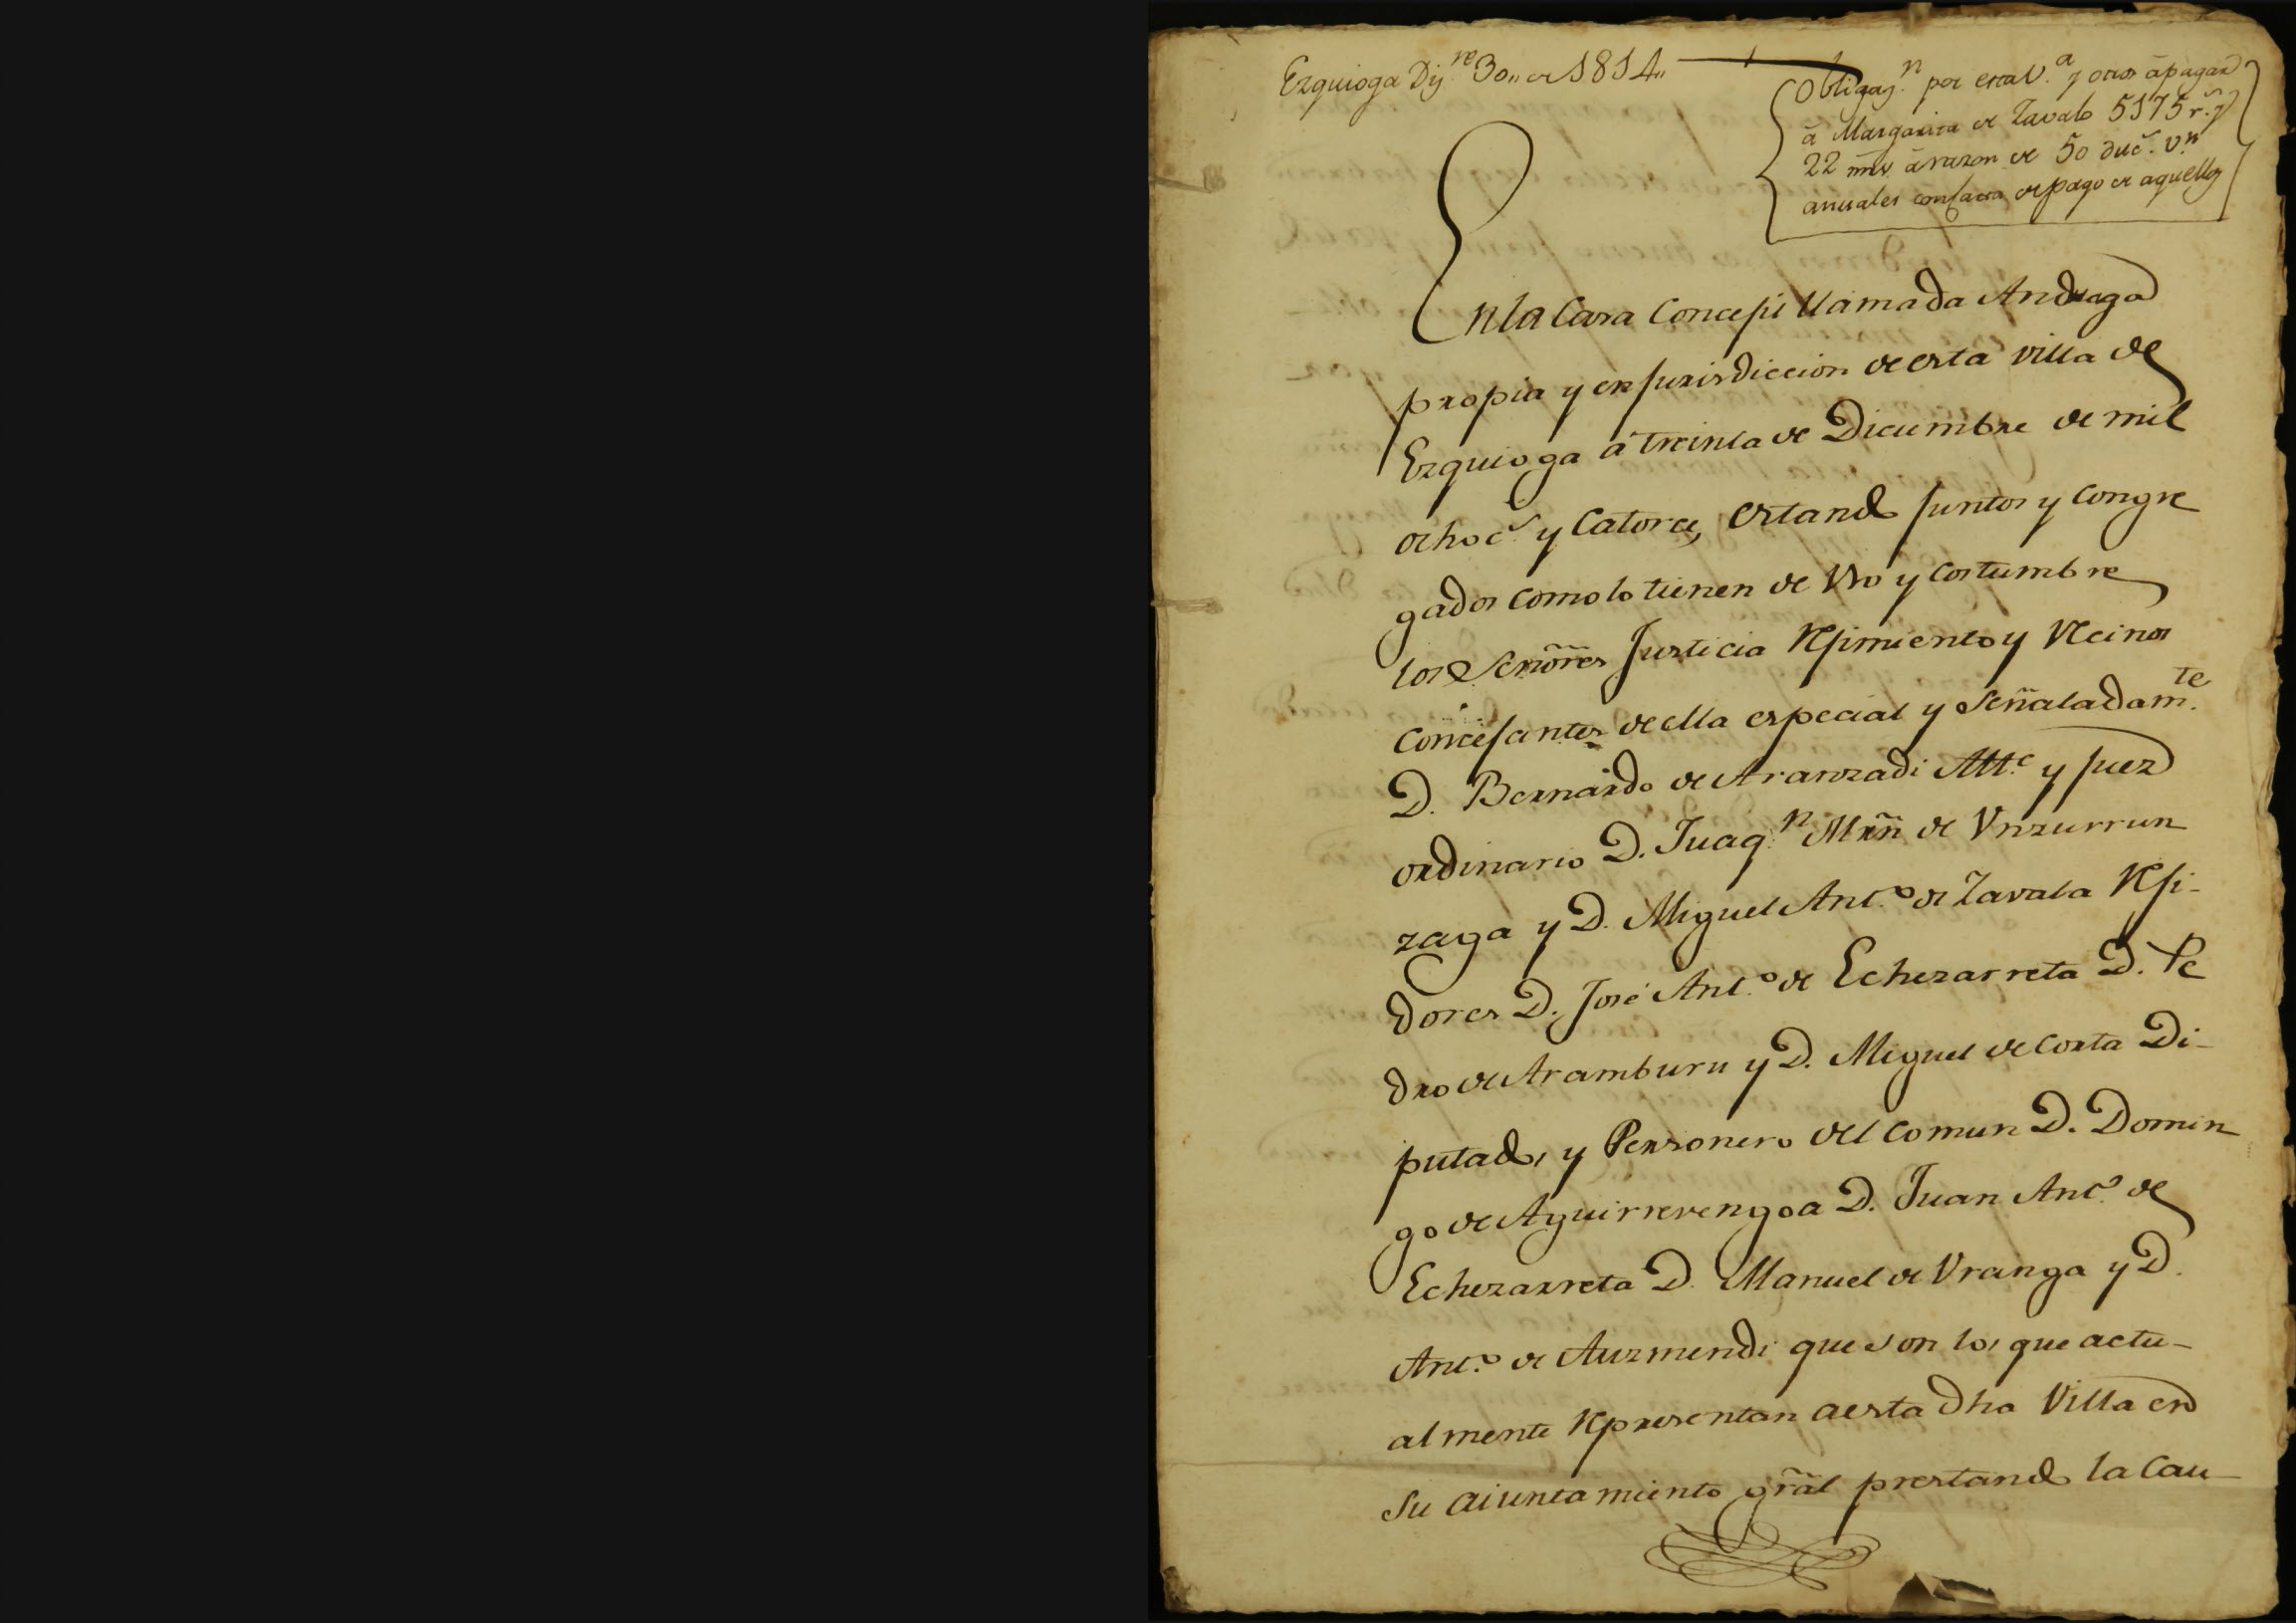 Ezquioga Diz.re 30,, de 1814,,
Obligaz.n por esta V.a y otros á pagar
á Margarita de Zavala 5175 r.s y
22 mrs á razon de 50 duc.s v.n
anuales con carta de pago de aquellos
En la Casa Concejil llamada Andiaga
propia y en jurisdiccion de esta villa de
Ezquioga á treinta de Diciembre de mil
ochoc.s y Catorce, estando juntos y congre
gados como lo tienen de Uso y costumbre
los Señores Justicia Rejimiento y Vecinos
Concejantes de ella especial y señaladam.te
D. Bernardo de Aranzadi Alc.e y juez
ordinario D. Juaq.n Mrñ de Unzurrun
zaga y D. Miguel Ant.o de Zavala Reji-
dores D. José Ant.o de Echezarreta D. Pe
dro de Aramburu y D. Miguel de Corta Di-
putados, y Personero del comun D. Domin
go de Aguirrevengoa D. Juan Ant.o de
Echezarreta D. Manuel de Uranga y D.
Ant.o de Auzmendi que son los que actu-
almente Representan a esta dha Villa en
su aiuntamiento grãl prestando la Cau-